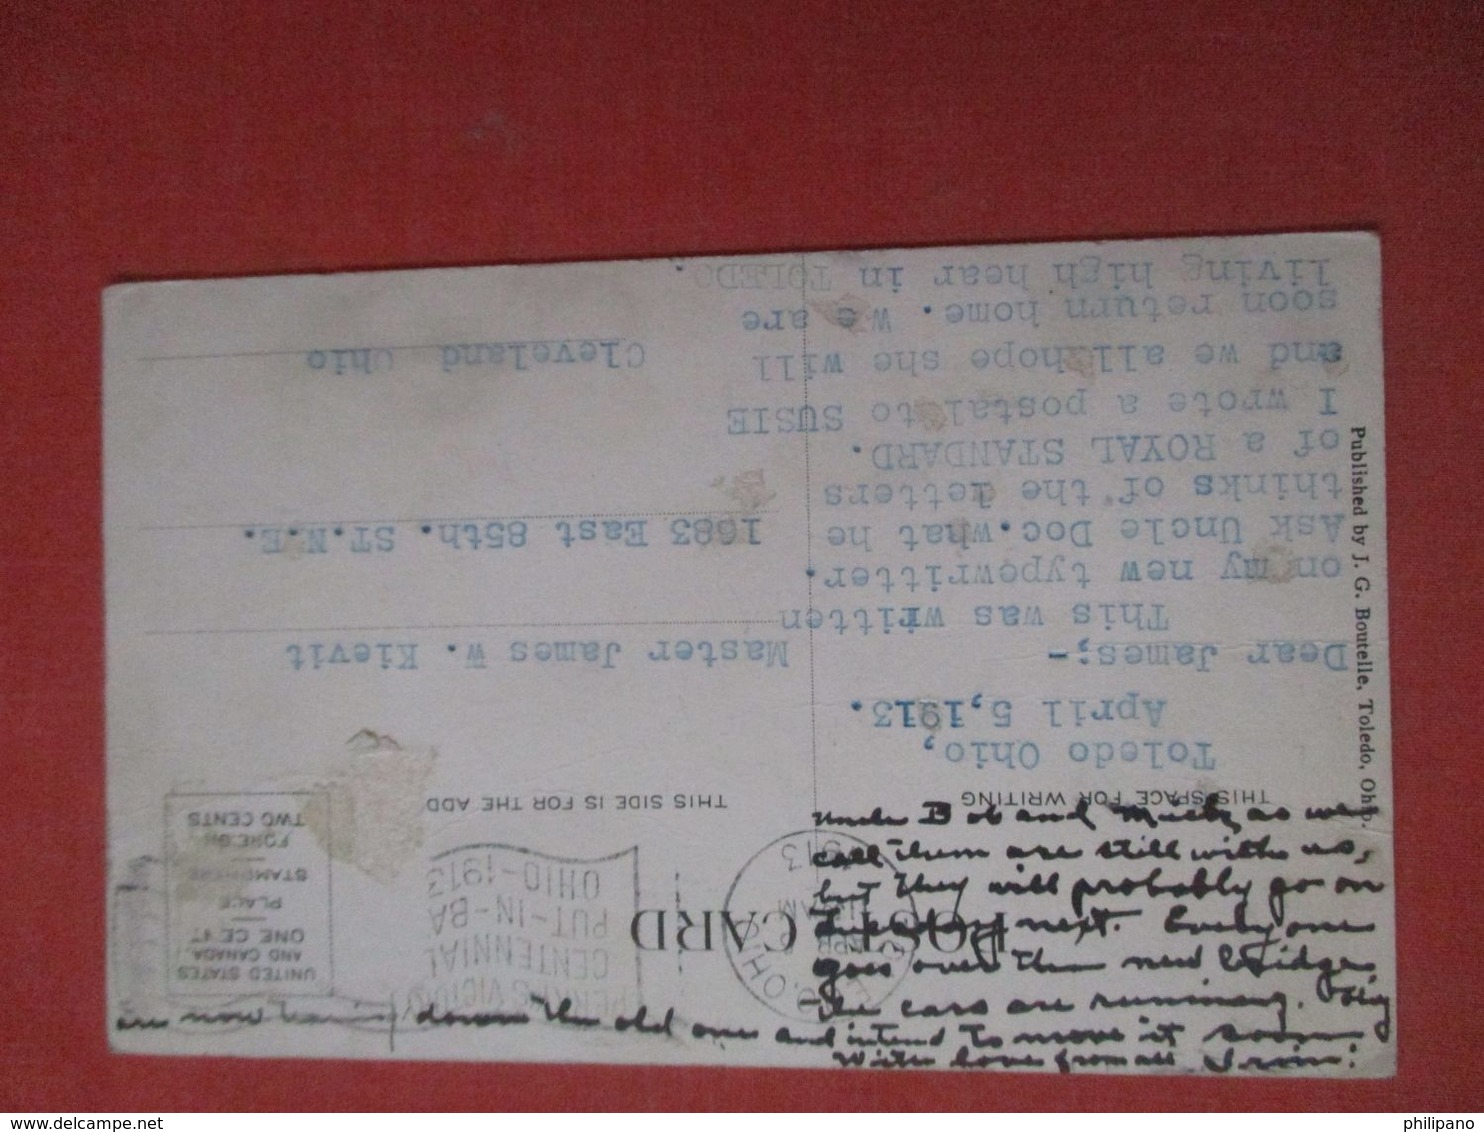 POST CARD
THIS SPACE FOR WRITING
THIS SIDE IS FOR THE ADD
UNITED STATES
AND CANADA
ONE CENT
PLACE
STAMP HERE
FOREIGN
TWO CENTS
OHIO
APR
AM
1913
PERRY'S VICTORY
CENTENNIAL
PUT-IN-BA
OHIO-1913
Toledo Ohio,
April 5,1913.
Dear James;-
This was written
on my new typowritter.
Ask Uncle Doc.what he
thinks of the letters
of a ROYAL STANDARD.
I wrote a postal to SUSIE
and we all hope she will
soon return home. We are
living high hear in TOLEDO.
Master James W. Kievit
1683 East 85th. ST.N.E.
Cleveland Ohio
Published by J. G. Boutelle, Toledo, Ohio.
Uncle Bob and as we
call them are still with us,
but they will probably go on
next. Everyone
goes over the new bridge
the cars are running. They
are now tearing down the old one and intend to move it soon
With love from all Irvin.
philipano
delcampe.net